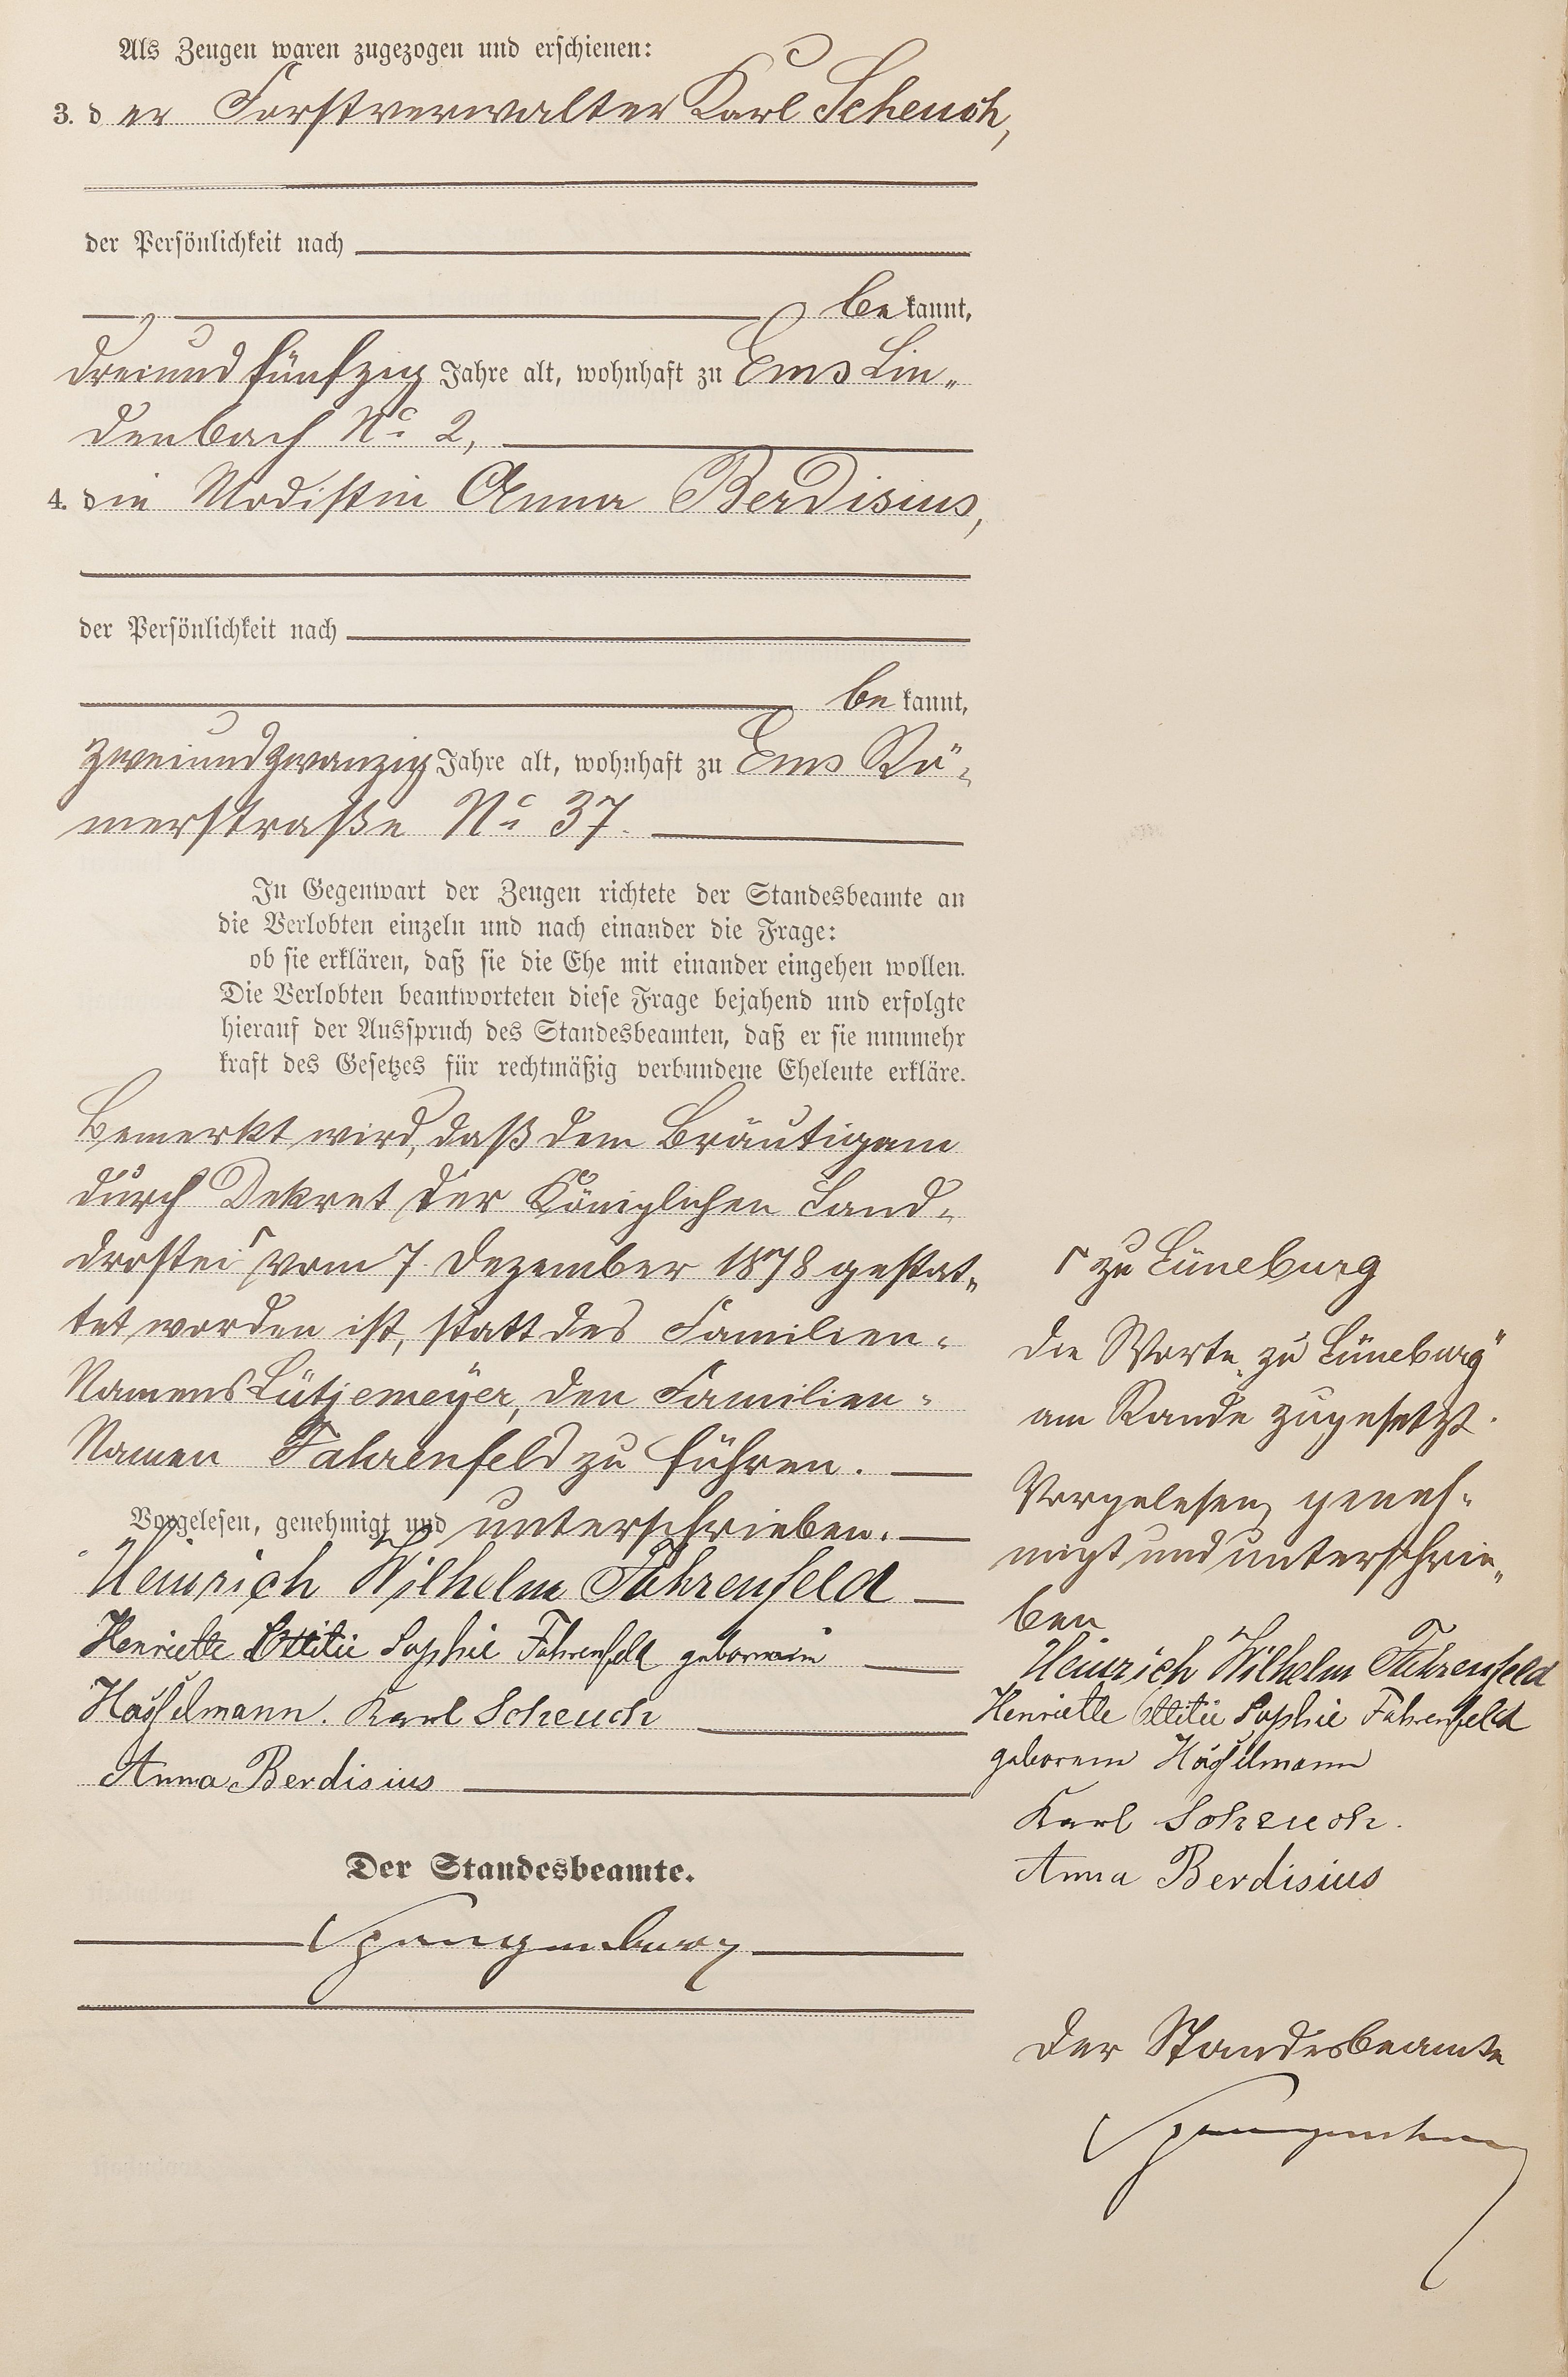 Als Zeugen waren zugezogen und erschienen:
3. d er Forstverwalter Karl Scheuch,
der Persönlichkeit nach
be kannt,
dreiundfünfzig Jahre alt, wohnhaft zu Ems Lin-
denbach No 2,
4. die Modistin Anna Berdisius,
der Persönlichkeit nach
be kannt,
zweiundzwanzig Jahre alt, wohnhaft zu Ems Rö-
merstraße No 37.
In Gegenwart der Zeugen richtete der Standesbeamte an
die Verlobten einzeln und nach einander die Frage:
ob sie erklären, daß sie die Ehe mit einander eingehen wollen.
Die Verlobten beantworteten diese Frage bejahend und erfolgte
hierauf der Ausspruch des Standesbeamten, daß er sie nunmehr
kraft des Gesetzes für rechtmäßig verbundene Eheleute erkläre.
Bemerkt wird, daß dem Bräutigam
durch Dekret der Königlichen Land-
drostei ┌ vom 7. Dezember 1878 gestat-
tet worden ist, statt des Familien-
Namens Lütjemeyer, den Familien-
Namen Fahrenfeld zu führen.
Vorgelesen, genehmigt und unterschrieben.
Heinrich Wilhelm Fahrenfeld
Henriette Ottilie Sophie Fahrenfeld geborene
Hasselmann. Karl Scheuch
Anna Berdisius
Der Standesbeamte.
Spangenberg
┌ zu Lüneburg
Die Worte „zu Lüneburg"
am Rande zugesetzt.
Vorgelesen, geneh-
migt und unterschrie-
ben
Heinrich Wilhelm Fahrenfeld
Henriette Ottilie Sophie Fahrenfeld
geborene Hasselmann
Karl Scheuch.
Anna Berdisius
Der Standesbeamte
Spangenberg